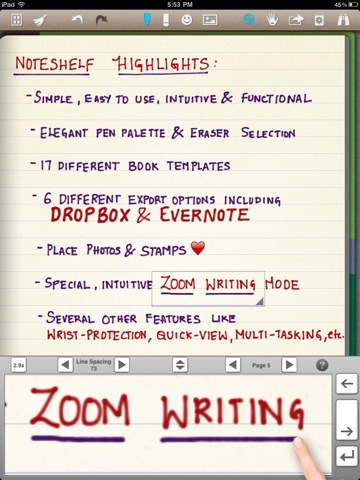 iPad
5:53 PM
NOTESHELF HIGHLIGHTS:
- SIMPLE, EASY TO USE, INTUITIVE & FUNCTIONAL
- ELEGANT PEN PALETTE & ERASER SELECTION
- 17 DIFFERENT BOOK TEMPLATES
- 6 DIFFERENT EXPORT OPTIONS INCLUDING
DROPBOX & EVERNOTE
- PLACE PHOTOS & STAMPS ❤
- SPECIAL, INTUITIVE ZOOM WRITING MODE
- SEVERAL OTHER FEATURES LIKE
WRIST-PROTECTION, QUICK-VIEW, MULTI-TASKING, etc.
2.9x
Line Spacing
73
Page 5
?
ZOOM WRITING